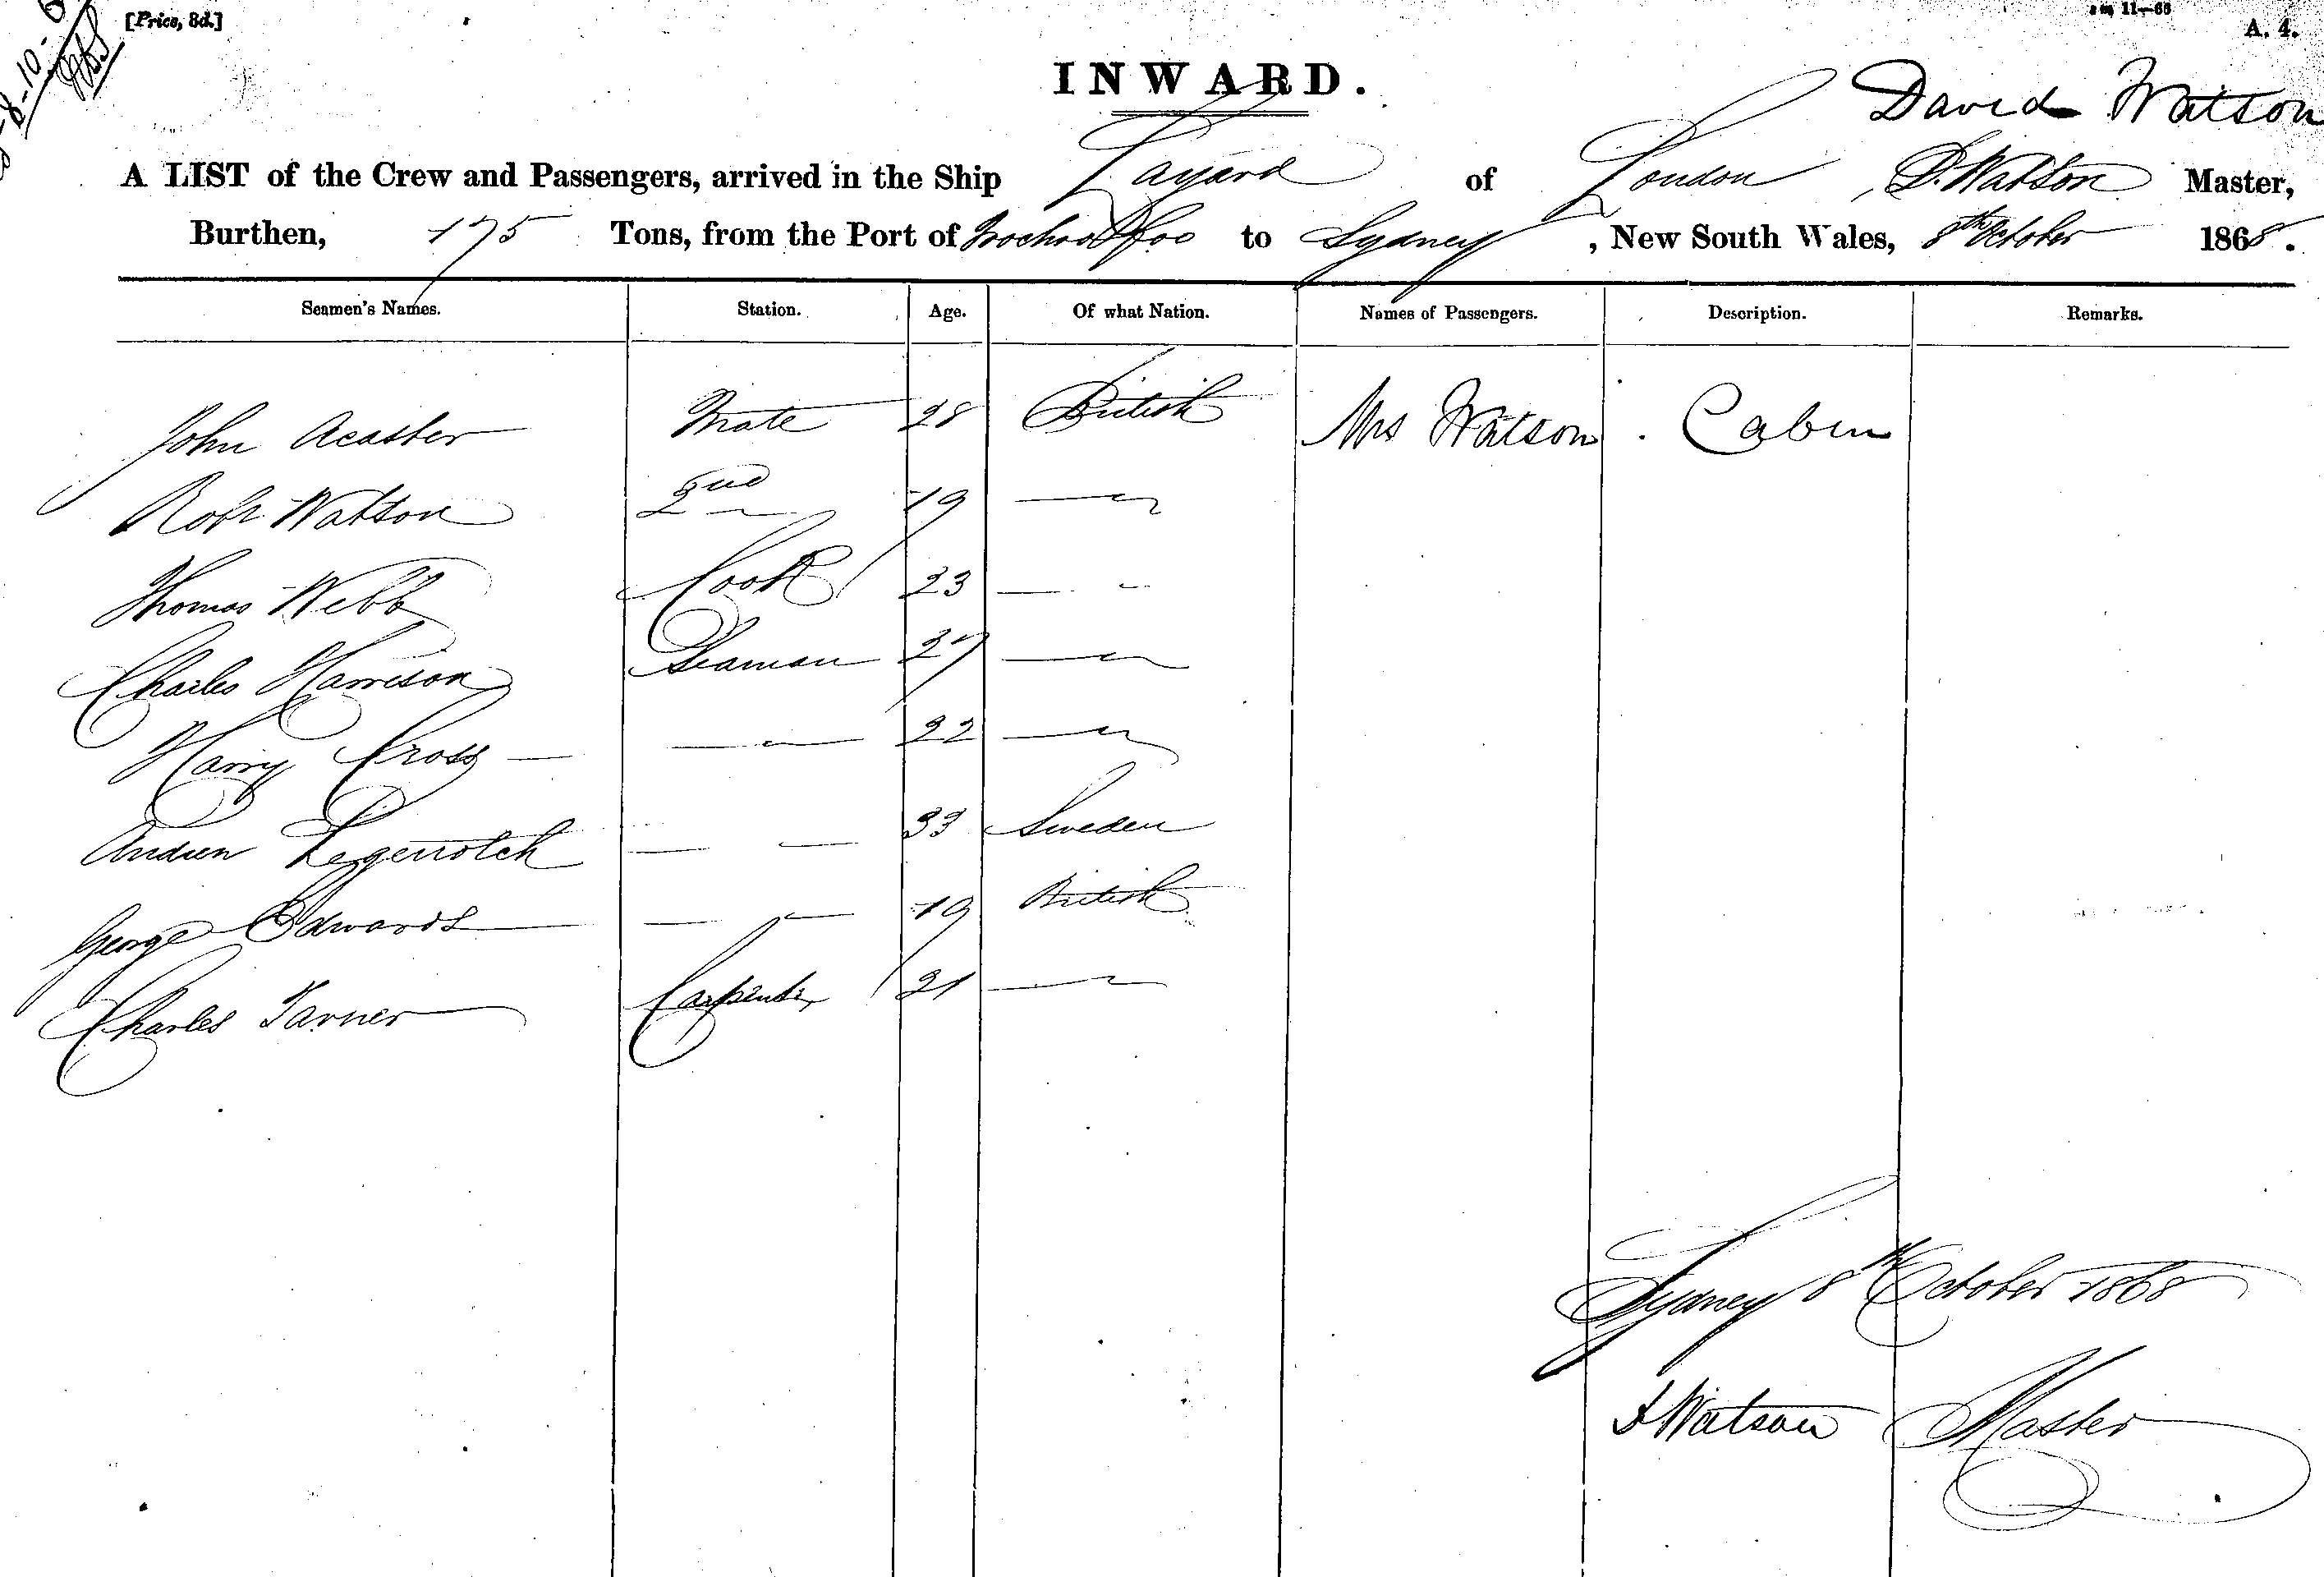 [Price, 8d.]
A. 4.
INWARD.
David Watson
A LIST of the Crew and Passengers, arrived in the Ship Layard of London, D. Watson Master,
Burthen, 175 Tons, from the Port of to Sydney, New South Wales, 8th October 1868.
Seamen's Names. Station. Age. Of what Nation. Names of Passengers. Description. Remarks.
John Acaster Mate 28 British Mrs Watson. Cabin
Robt Watson 2nd 19 — "
Thomas Webb Cook 23 — "
Charles Harrison Seaman 27 — "
Harry Cross — " — 22 — "
Andrew 33 Sweden
George Edwards — " — 19 British
Charles Tarner Carpenter 21 — "
Sydney 8th October 1868
D Watson Master